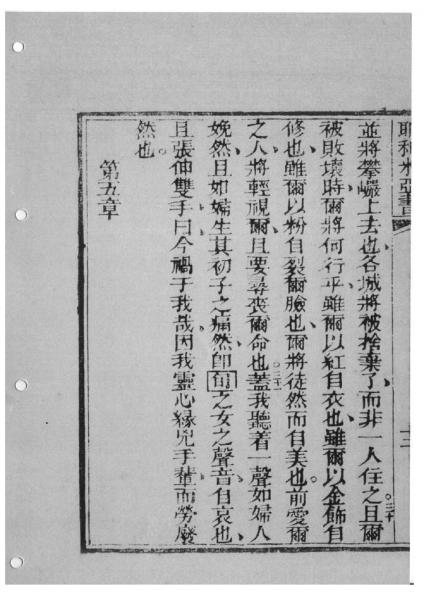 並將攀巖上去也各城將被捨棄了而非一人住之且爾
被敗壞時爾將何行乎雖爾以紅自衣也雖爾以金飾自
修也雖爾以粉自裂爾臉也爾將徒然而自美也前愛爾
之人將輕視爾且要尋喪爾命也蓋我聽着一聲如婦人
娩然且如婦生其初子之痛然即旬之女之聲音自哀也
且張伸雙手曰今禍于我哉因我靈心緣兇手輩而勞廢
然也
第五章